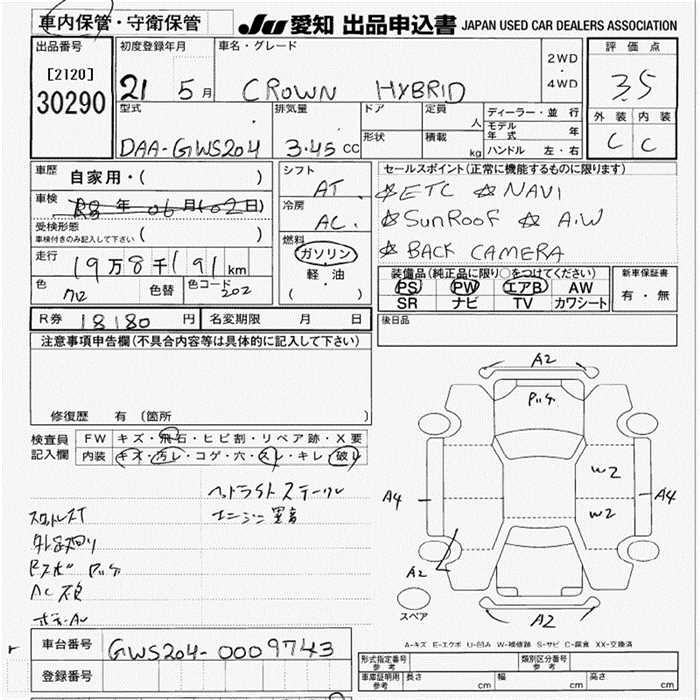 車内保管・守衛保管
JU 愛知 出品申込書 JAPAN USED CAR DEALERS ASSOCIATION
出品番号
[2120]
30290
初度登録年月
21 5月
車名・グレード
CROWN HYBRID
2WD
・
4WD
評価点
3.5
外装 内装
C C
型式
DAA-GWS204
排気量
3.45 CC
ドア
形状
定員
人
積載
kg
ディーラー・並行
モデル年式 年
ハンドル 左・右
車歴
自家用・( )
車検
R3年 06月(02日)
受検形態
車検付きのみ記入して下さい ( )
走行
19万8千191km
色
色替
色コード 202
シフト
AT
冷房
AC
燃料
ガソリン
・
軽・油
( )
セールスポイント(正常に機能するものに限ります)
☆ETC ☆NAVI
☆SunRoof ☆A.W
☆BACK CAMERA
装備品(純正品に限り○をつけてください)
PS PW エアB AW
SR ナビ TV カワシート
新車保証書
有・無
R券 18180円
名変期限 月 日
後日品
注意事項申告欄(不具合内容等は具体的に記入して下さい)
修復歴 有(箇所 )
検査員記入欄
FW キズ・飛石・ヒビ割・リペア跡・X要
内装 キズ・汚レ・コゲ・穴・スレ・キレ・破レ
A2
A4
W2
W2
A4
A2
A2
スペア
A-キズ E-エクボ U-凹み W-補修跡 S-サビ C-腐食 XX-交換済
車台番号
GWS204-0009743
登録番号
形式指定番号
参考
類別区分番号
参考
車庫証明用
参考
長さ cm
幅 cm
高さ cm